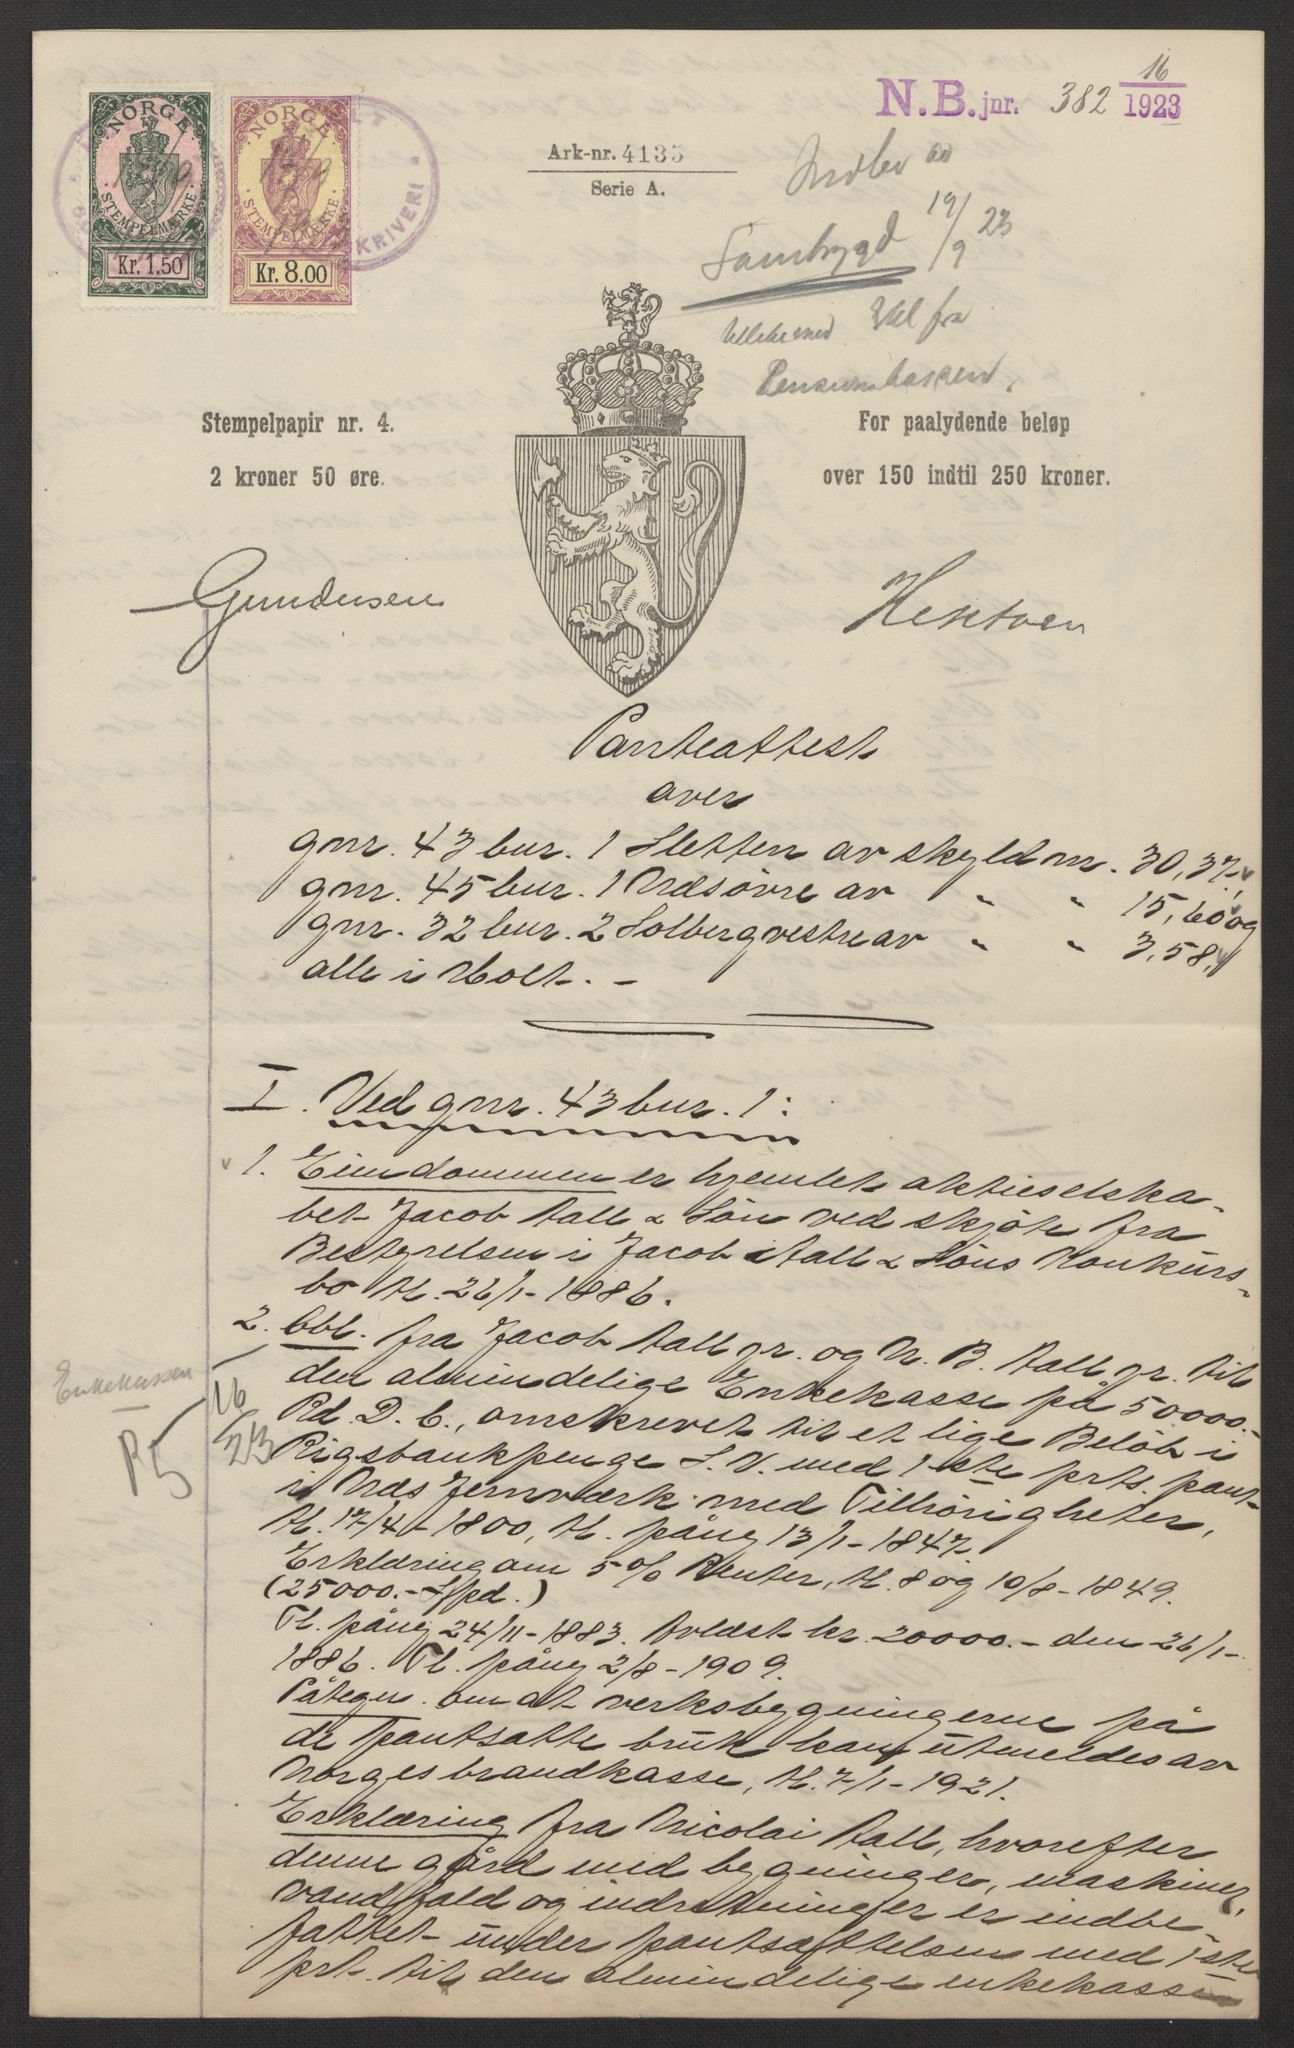 N.B. jnr. 382 16/1923
NORGE
STEMPELMÆRKE
Kr. 1.50
NORGE
STEMPELMÆRKE
Kr. 8.00
SKRIVERI
Ark-nr. 4135
Serie A.
Indlev av
Sambygd 19/9 23
fra
Pensionskassen.
Stempelpapir nr. 4.
2 kroner 50 øre.
For paalydende beløp
over 150 indtil 250 kroner.
Gundersen
Hektoen
Panteattest
over
gnr. 43 bnr. 1 Sletten av skyld m. 30,37,
gnr. 45 bnr. 1 Næsøvre av " " 15,60 og
gnr. 32 bnr. 2 Solbergvestre av " " 3,58,
alle i Holt. -
I. Ved gnr. 43 bnr. 1:
1. Eiendommen er hjemlet aktieselska-
bet Jacob Aall & Søn ved skjøte fra
Bestyrelsen i Jacob Aall & Søns Konkurs-
bo tl. 26/1-1886.
2. Obl. fra Jacob Aall jr. og N. B. Aall jr. til
den almindelige Enkekasse på 50000.-
Rd. D. C., omskrevet til et lige Beløb i
Rigsbankpenge S. V. med 1ste prts. pant
i Næs Jernværk med Tilhørigheter,
tl. 17/4-1800, tl. påny 13/1-1847.
Erklæring om 5 % Renter, tl. 8 og 10/8-1849.
(25000.- Spd.)
Tl. påny 24/11-1883. Avløst kr. 20000.- den 26/1-
1886. Tl. påny 2/8-1909.
Påtegn. om at verksbygningerne på
de pantsatte bruk kan utmeldes av
Norges brandkasse, tl. 7/1-1921.
Erklæring fra Nicolai Aall, hvorefter
denne gård med bygninger, maskiner,
vandfald og indretninger er indbe-
fattet under pantsættelsen med 1ste
prt. til den almindelige enkekasse
Enkekassen
P5 16/23